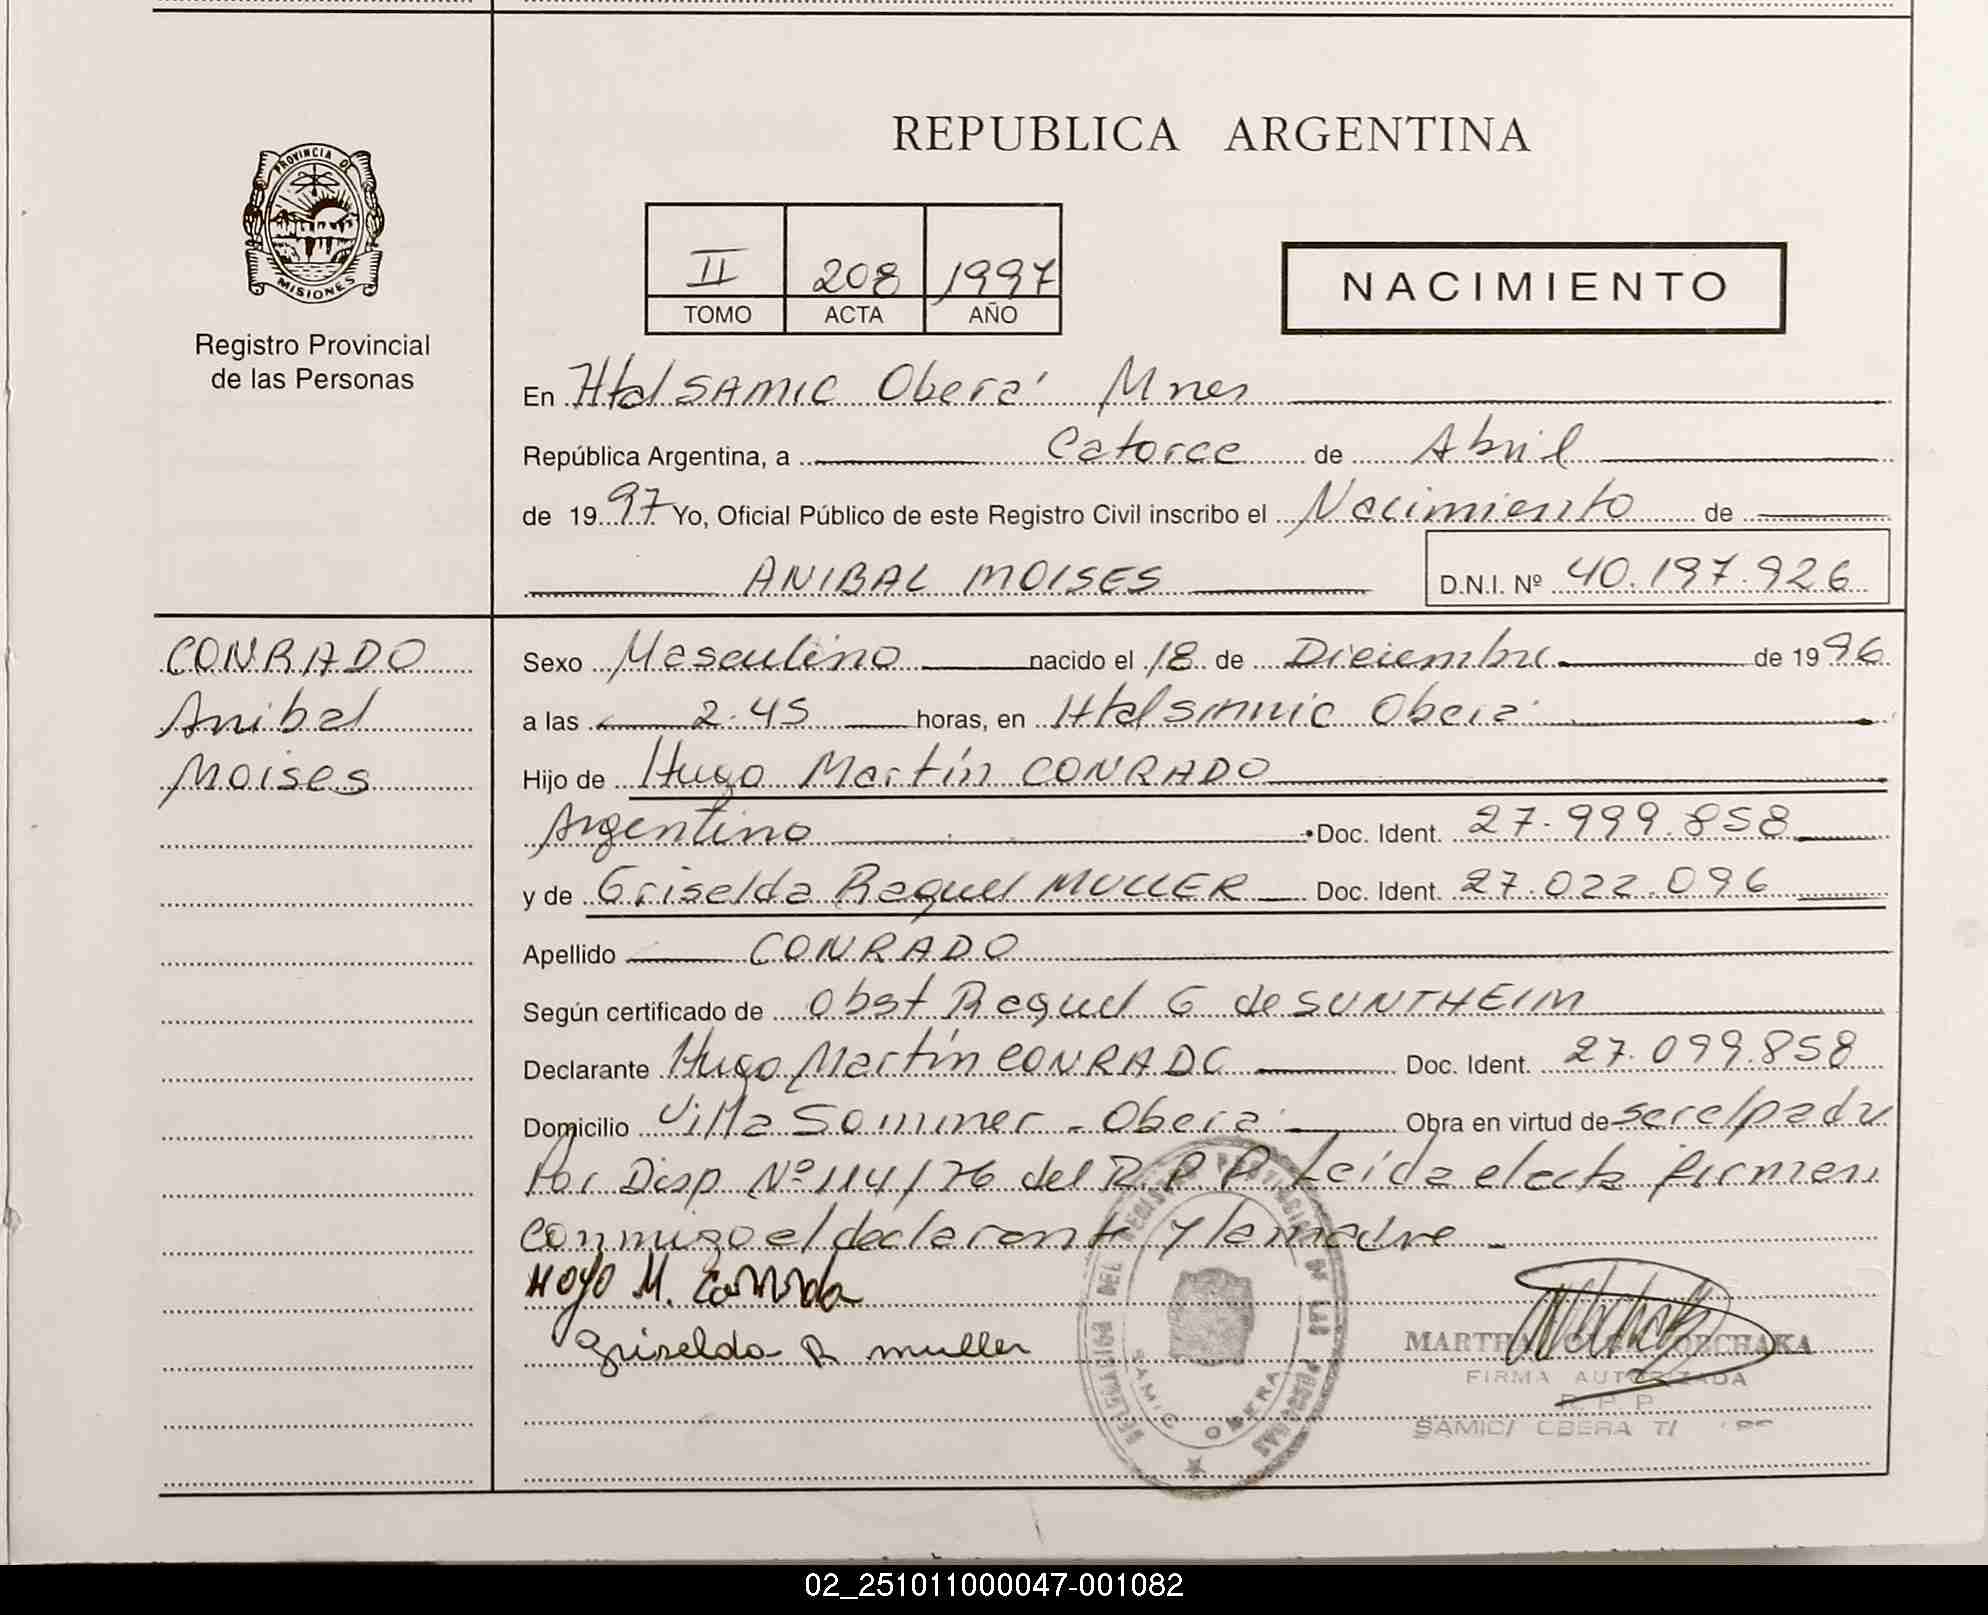 REPUBLICA ARGENTINA
PROVINCIA DE
MISIONES
Registro Provincial
de las Personas
II 208 1997
TOMO ACTA AÑO
NACIMIENTO
En Htal SAMIC Oberá Mnes
República Argentina, a Catorce de Abril
de 1997 Yo, Oficial Público de este Registro Civil inscribo el Nacimiento de
ANIBAL MOISES D.N.I. Nº 40.197.926
CONRADO
Anibal
Moises
Sexo Masculino nacido el 18 de Diciembre de 1996
a las 2.45 horas, en Htal Samic Oberá
Hijo de Hugo Martín CONRADO
Argentino Doc. Ident. 27.999.858
y de Griselda Raquel MULLER Doc. Ident. 27.022.096
Apellido CONRADO
Según certificado de Obst Raquel G de SUNTHEIM
Declarante Hugo Martín CONRADO Doc. Ident. 27.099.858
Domicilio Villa Sommer - Oberá Obra en virtud de ser el padre
Por Disp Nº 114/76 del R P P Leída el acta firman
conmigo el declarante y la madre
Hugo M. Conrado
Griselda R muller
DELEGACION DEL REGISTRO PROVINCIAL DE LAS PERSONAS
SAMIC OBERA
MARTHA
FIRMA AUTORIZADA
R. P. P.
SAMIC/ OBERA
02_251011000047-001082